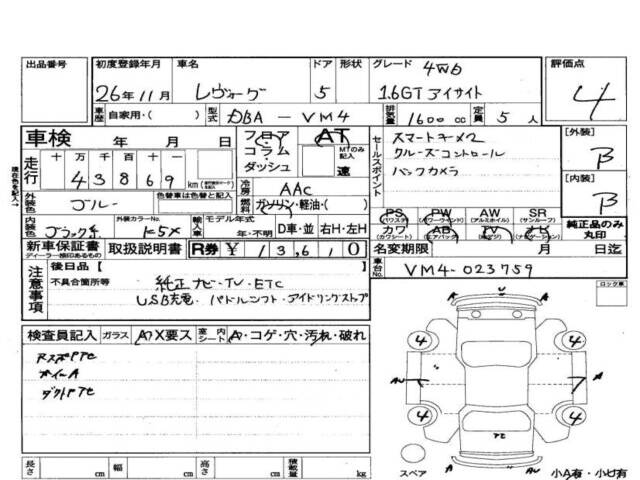 出品番号 初度登録年月 車名 ドア 形状 グレード 評価点
26年11月 レヴォーグ 5 4WD
1.6GTアイサイト 4
車歴 自家用・( ) 型式 DBA-VM4 排気量 1600 cc 定員 5 人
車検 年 月 日 フロア コラム ダッシュ AT MTのみ記入 速
走行 十万 万 千 百 十 一
43869 km
セールスポイント
スマートキー×2
クルーズコントロール
バックカメラ
[外装] B
[内装] B
冷房 AAC
燃料 ガソリン・軽油・( )
外装色 ブルー 色替車は色替と記入
内装色 ブラック系 外装カラーNo. K5X 輸入車 モデル年式 年・不明 D車・並 右H・左H
PS (パワステ) PW (パワーウインド) AW (アルミホイル) SR (サンルーフ)
カワ (カワシート) AB (エアバック) TV (ナビ) ナビ (ナビゲーション)
純正品のみ丸印
新車保証書 ディーラー捺印のあるもの 取扱説明書 R券 ¥ 13,610
名変期限 月 日迄
車台No. VM4-023759
現在色を記入
注意事項 後日品 [ ]
不具合箇所等 純正ナビ・TV・ETC
USB充電・パドルシフト・アイドリングストップ
ロック車
検査員記入 ガラス A・X要ス 室内シート A・コゲ・穴・汚れ・破れ
ホイールA
4 4
A U A
AU A
4 4
A AU
長さ cm 幅 cm 高さ cm 積載量 kg
スペア 小A有・小U有